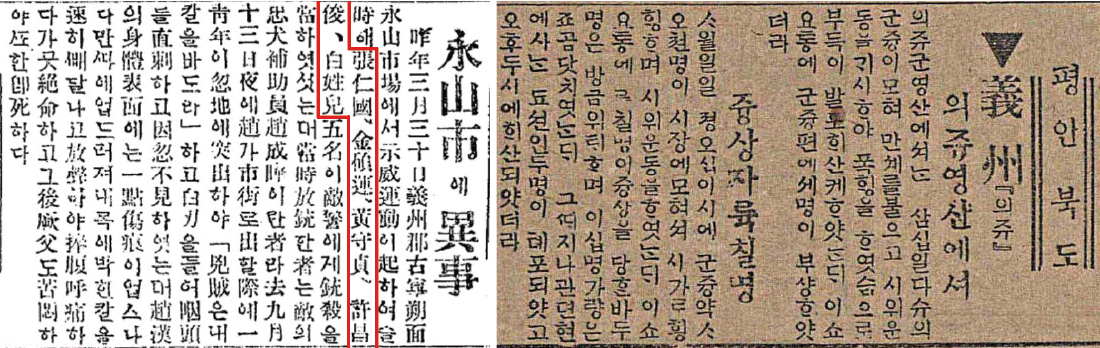 永山市에 異事
昨年三月三十日義州郡古寧朔面
永山市場에서示威運動이起하여슬
時에張仁國、金碩運、黃守貞、許昌
俊、白姓兒五名이敵警에게銃殺을
當하엿섯는대當時放銃한者는敵의
忠犬補助員趙成暐이란者라去九月
十三日夜에趙가市街로出할際에一
靑年이忽地에突出하야「兇賊은내
칼을바도라」하고白刃을들어咽頭
를直刺하고因忽不見하엿는대趙漢
의身體表面에는一點傷痕이업스나
다만따에업드러져내목에박힌칼을
速히빼달나고放聲하야捧腹呼痛하
다가못絕命하고그後厥父도苦悶하
야또한卽死하다
평안북도
▼義州『의쥬』
의쥬영산에셔
의쥬군영산에셔는 삼십일다슈의
군즁이모혀 만셰를불으고 시위운
동을긔시ᄒᆞ야 폭ᄒᆡᆼ을 ᄒᆞ엿슴으로
부득이 발포회산케ᄒᆞ얏는ᄃᆡ 이쇼
요통에 군즁편에세명이 부샹ᄒᆞ얏
더라
즁상자륙칠명
사월일일 졍오십이시에 군즁약사
오쳔명이 시장에모혀셔 시가로ᄒᆡᆼ
ᄒᆡᆼᄒᆞ며 시위운동을ᄒᆞ엿는ᄃᆡ 이쇼
요통에 륙칠명이즁상을 당ᄒᆞᆫ바두
명은 방금위독ᄒᆞ며 이십명가량은
죠곰닷치엿는ᄃᆡ 그 지나관련현
에사는 됴션인두명이 톄포되얏고
오후두시에희산되얏더라